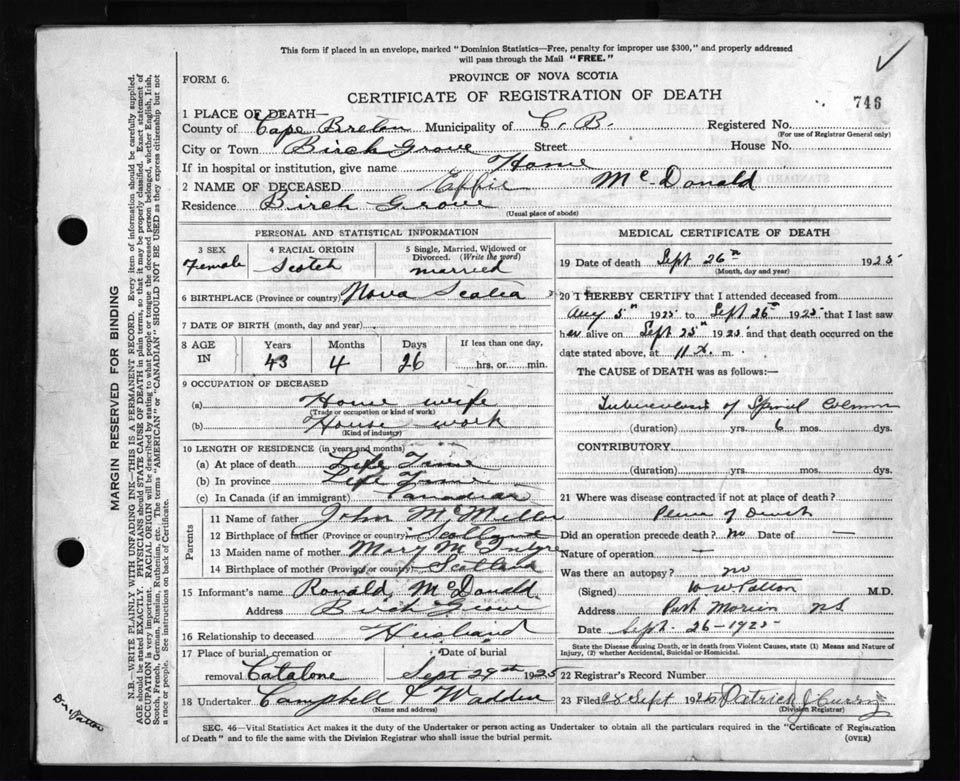 This form if placed in an envelope, marked "Dominion Statistics—Free, penalty for improper use $300," and properly addressed
will pass through the Mail "FREE."
FORM 6.
PROVINCE OF NOVA SCOTIA
CERTIFICATE OF REGISTRATION OF DEATH
746
1 PLACE OF DEATH—
County of Cape Breton Municipality of C. B. Registered No.
(For use of Registrar General only)
City or Town Birch Grove Street House No.
If in hospital or institution, give name Home
2 NAME OF DECEASED Effie McDonald
Residence Birch Grove
(Usual place of abode)
PERSONAL AND STATISTICAL INFORMATION
3 SEX Female
4 RACIAL ORIGIN Scotch
5 Single, Married, Widowed or Divorced. (Write the word) married
6 BIRTHPLACE (Province or country) Nova Scotia
7 DATE OF BIRTH (month, day and year)
8 AGE IN Years 43 Months 4 Days 26 If less than one day, hrs. or min.
9 OCCUPATION OF DECEASED
(a) House wife
(Trade or occupation or kind of work)
(b) House work
(Kind of industry)
10 LENGTH OF RESIDENCE (in years and months)
(a) At place of death Life Time
(b) In province Life Time
(c) In Canada (if an immigrant) Canadian
Parents
11 Name of father John McMillan
12 Birthplace of father (Province or country) Scotland
13 Maiden name of mother Mary McIntyre
14 Birthplace of mother (Province or country) Scotland
15 Informant's name Ronald McDonald
Address Birch Grove
16 Relationship to deceased Husband
17 Place of burial, cremation or removal Catalone Date of burial Sept 29th 1925
18 Undertaker Campbell & Wadden
(Name and address)
MEDICAL CERTIFICATE OF DEATH
19 Date of death Sept 26th 1925
(Month, day and year)
20 I HEREBY CERTIFY that I attended deceased from
Aug 5th 1925 to Sept 26th 1925 that I last saw
her alive on Sept 25th 1925 and that death occurred on
date stated above, at 11 m.
The CAUSE OF DEATH was as follows:—
Tuberculosis of Spinal Column
(duration) yrs. 6 mos. dys.
CONTRIBUTORY.
(duration) yrs. mos. dys.
21 Where was disease contracted if not at place of death?
Place of Death
Did an operation precede death? no Date of —
Nature of operation —
Was there an autopsy? no
(Signed) W. W. Patton M.D.
Address Port Morien N S
Date Sept. 26 - 1925
State the Disease causing Death, or in death from Violent Causes, state (1) Means and Nature of Injury, (2) whether Accidental, Suicidal or Homicidal.
22 Registrar's Record Number
23 Filed 28 Sept 1925 Patrick J Curry
(Division Registrar)
SEC. 46—Vital Statistics Act makes it the duty of the Undertaker or person acting as Undertaker to obtain all the particulars required in the "Certificate of Registration
of Death" and to file the same with the Division Registrar who shall issue the burial permit.
(OVER)
MARGIN RESERVED FOR BINDING
N.B.—WRITE PLAINLY WITH UNFADING INK—THIS IS A PERMANENT RECORD. Every item of information should be carefully supplied.
AGE should be stated EXACTLY. PHYSICIANS should STATE CAUSE OF DEATH in plain terms, so that it may be properly classified. Exact statement of
OCCUPATION is very important. RACIAL ORIGIN will be described by stating to what people or tongue the deceased person belonged, whether English, Irish,
Scotch, French, German, Russian, Ruthenian, etc. The terms "AMERICAN" or "CANADIAN" SHOULD NOT BE USED as they express citizenship but not
a race or people. See instructions on back of Certificate.
Dr. Patton